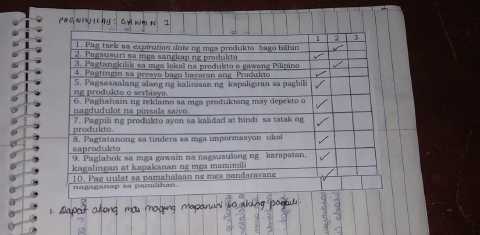 PAGNINILAY: GAWAIN 1
1 2 3
1. Pag tsek sa expiration date ng mga produkto bago bilhin
2. Pagsusuri sa mga sangkap ng produkto
3. Pagtangkilik sa mga lokal na produkto o gawang Pilipino
4. Pagtingin sa presyo bago bayaran ang Produkto
5. Pagsasaalang alang ng kalinisan ng kapaligiran sa pagbili
ng produkto o serbisyo.
6. Paghahain ng reklamo sa mga produktong may depekto o
nagdudulot na pinsala saiyo.
7. Pagpili ng produkto ayon sa kalidad at hindi sa tatak ng
produkto.
8. Pagtatanong sa tindera sa mga impormasyon ukol
saprodukto
9. Paglahok sa mga gawain na nagsusulong ng karapatan,
kagalingan at kapakanan ng mga mamimili
10. Pag uulat sa pamahalaan ng mga pandarayang
nagaganap sa pamilihan.
1. Dapat akong mas maging mapanuri sa aking pagbili.